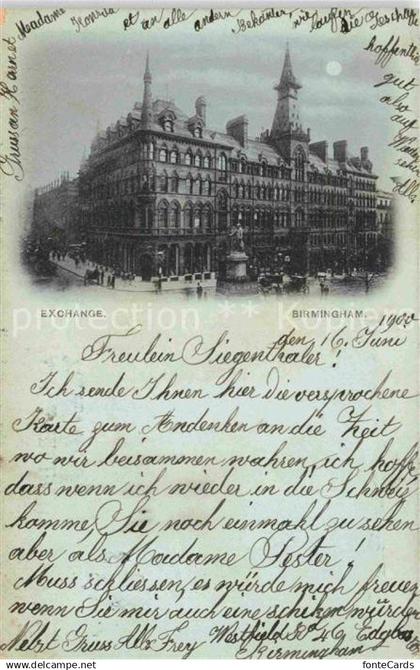 Madame Konrad et an alle andern Bekanter wie laufen die Geschäfte
hoffentlich gut also auf
Gruss an Hainet
EXCHANGE. BIRMINGHAM.
den 16 Juni 1900
Freulein Siegenthaler!
Ich sende Ihnen hier die versprochene
Karte zum Andenken an die Zeit
wo wir beisammen wahren, ich hoffe
dass wenn ich wieder in die Schweiz
komme, Sie noch einmahl zu sehen
aber als Madame Pester!
Muss schliessen, es würde mich freuen
wenn Sie mir auch eine schiken würden
Nebst Gruss Alb Frey Westfield Rd 49 Edgbas
Birmingham
© www.fonteCards.com